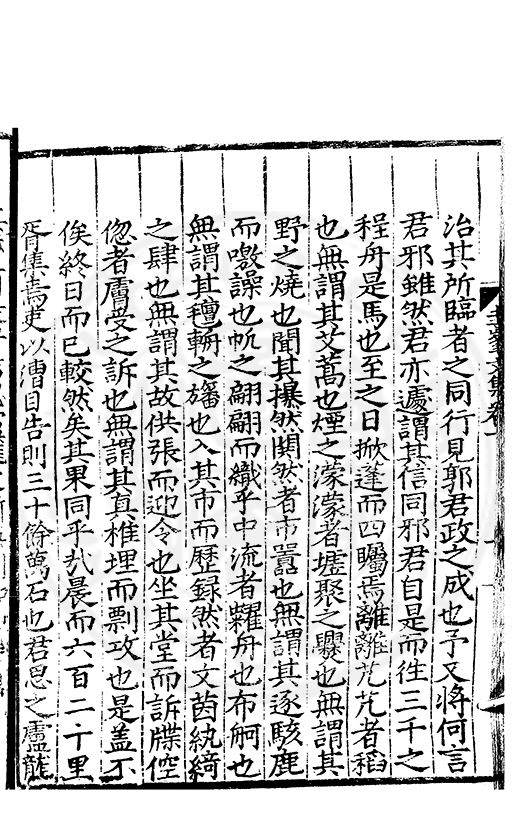 治其所臨者之同行見郭君政之成也予又將何言
君邪雖然君亦遽謂其信同邪君自是而徃三千之
程舟是馬也至之日掀蓬而四矚焉離離芃芃者稻
也無謂其艾蒿也煙之濛濛者墟聚之爨也無謂其
野之燒也聞其㬥然鬨然者市囂也無謂其逐駭鹿
而噭譟也帆之翩翩而織乎中流者糴舟也布舸也
無謂其氊輛之旛也入其市而歷録然者文茵紈綺
之肆也無謂其故供張而迎令也坐其堂而訴牒倥
偬者膚受之訴也無謂其真椎埋而剽攻也是盖不
俟終日而已較然矣其果同乎㢤晨而六百二十里
胥集焉吏以漕目告則三十餘萬石也君思之盧龍